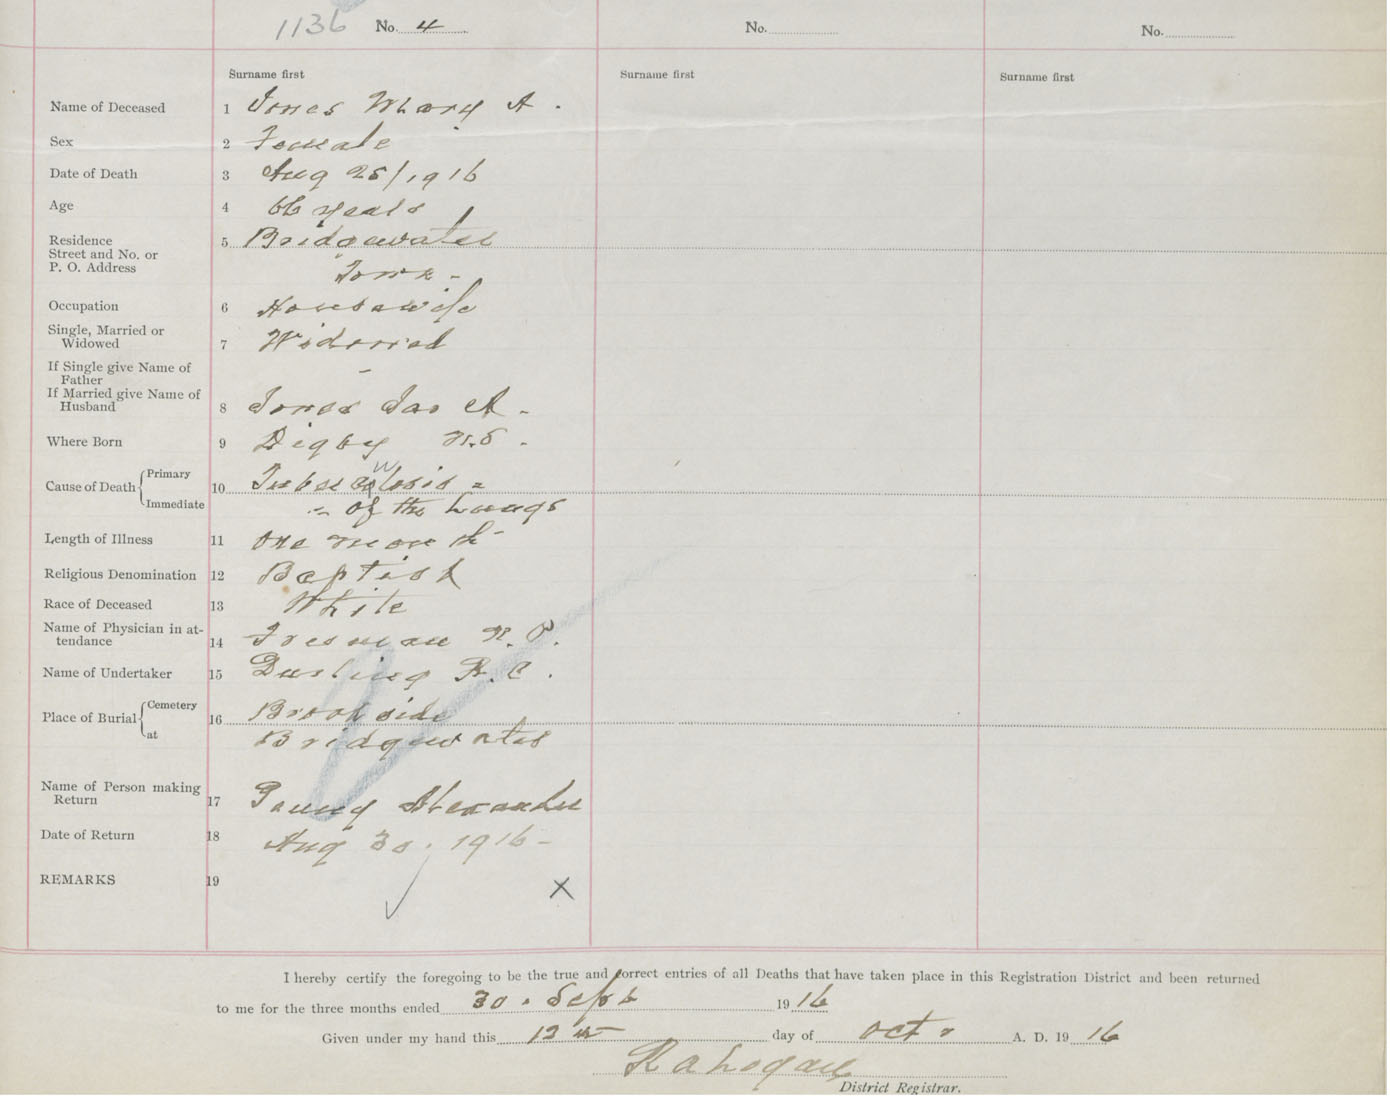 1136 No. 4 No. No.
Surname first Surname first Surname first
Name of Deceased 1 Jones Mary A.
Sex 2 Female
Date of Death 3 Aug 25/1916
Age 4 66 years
Residence
Street and No. or
P. O. Address
5 Bridgewater
Town -
Occupation 6 Housewife
Single, Married or
Widowed 7 Widowed
If Single give Name of
Father -
If Married give Name of
Husband 8 Jones Jas A.
Where Born 9 Digby N.S.
Cause of Death Primary Immediate
10 Tuberculosis
of the Lungs
Length of Illness 11 One month
Religious Denomination 12 Baptist
Race of Deceased 13 White
Name of Physician in at-
tendance 14 Freeman N. P.
Name of Undertaker 15 Durling R. C.
Place of Burial Cemetery at
16 Brookside
Bridgewater
Name of Person making
Return 17 Alexander
Date of Return 18 Aug 30. 1916 -
REMARKS 19
X
I hereby certify the foregoing to be the true and correct entries of all Deaths that have taken place in this Registration District and been returned
to me for the three months ended 30. Sept 1916
Given under my hand this 12th day of Oct A. D. 1916
District Registrar.